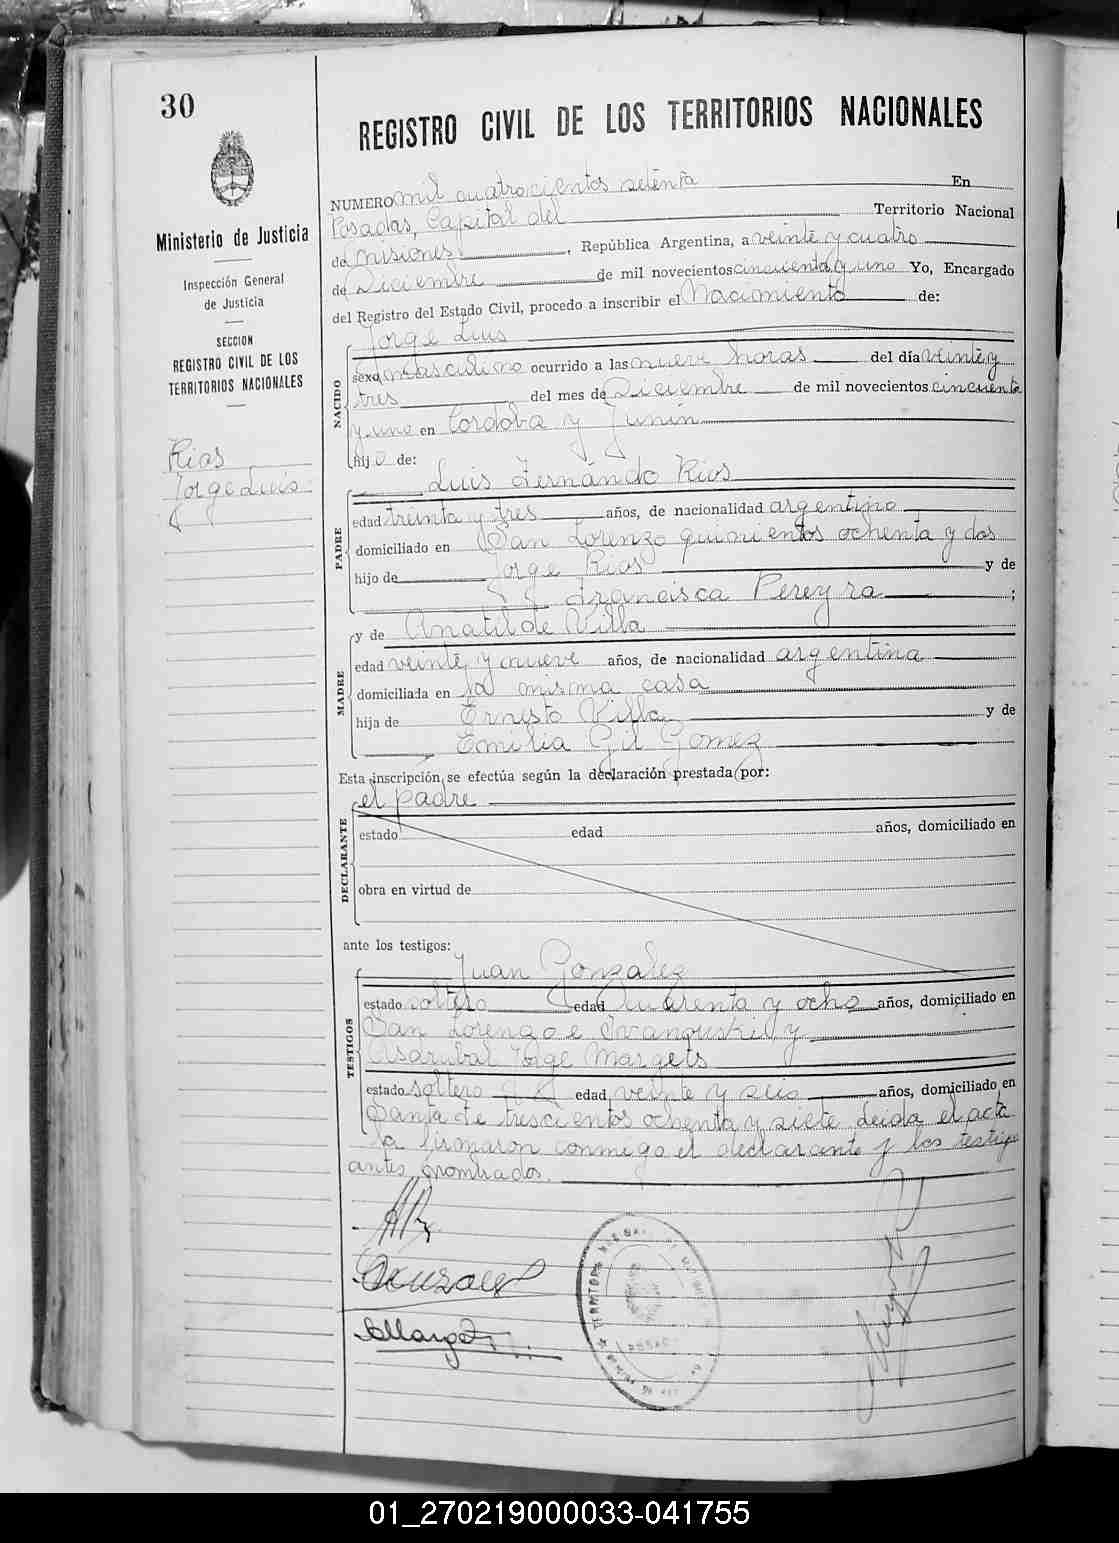 30
REGISTRO CIVIL DE LOS TERRITORIOS NACIONALES
Ministerio de Justicia
Inspección General
de Justicia
SECCION
REGISTRO CIVIL DE LOS
TERRITORIOS NACIONALES
Rios
Jorge Luis
NUMERO mil cuatrocientos setenta En
Posadas, Capital del Territorio Nacional
de Misiones, República Argentina, a veinte y cuatro
de Diciembre de mil novecientos cincuenta y uno Yo, Encargado
del Registro del Estado Civil, procedo a inscribir el Nacimiento de:
NACIDO
Jorge Luis
sexo masculino ocurrido a las nueve horas del día veinte y
tres del mes de Diciembre de mil novecientos cincuenta
y uno en Cordoba y Junin
hijo de:
PADRE
Luis Fernando Rios
edad treinta y tres años, de nacionalidad argentino
domiciliado en San Lorenzo quinientos ochenta y dos
hijo de Jorge Rios y de
Francisca Pereyra ;
MADRE
y de Anatilde Villa
edad veinte y nueve años, de nacionalidad argentina
domiciliada en la misma casa
hija de Ernesto Villa y de
Emilia Gil Gomez
Esta inscripción se efectúa según la declaración prestada por:
DECLARANTE
el padre
estado edad años, domiciliado en
obra en virtud de
ante los testigos:
TESTIGOS
Juan Gonzalez
estado soltero edad cuarenta y ocho años, domiciliado en
San Lorenzo e y
Asdrubal Jorge Margets
estado soltero edad veinte y seis años, domiciliado en
Santa Fe trescientos ochenta y siete Leida el acta
la firmaron conmigo el declarante y los testigos
antes nombrados.
Gonzalez
01_270219000033-041755